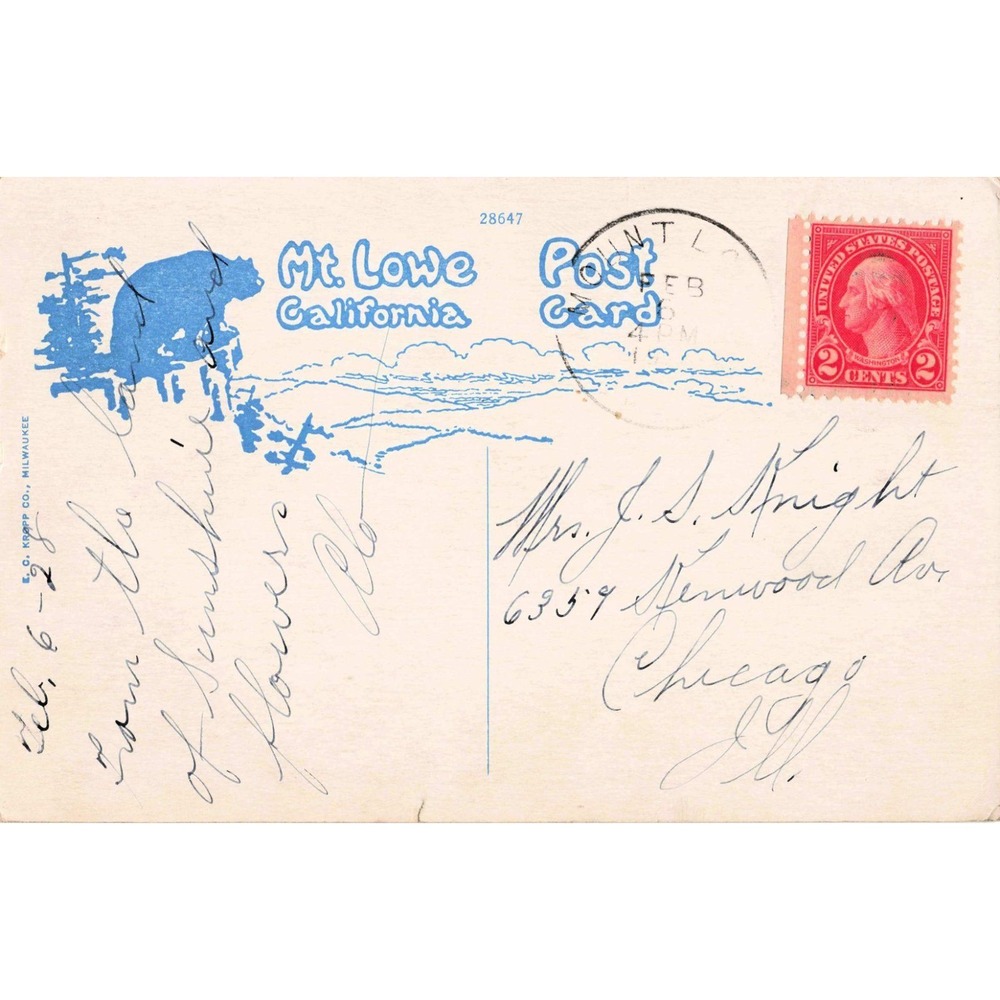 28647
Mt. Lowe
California
Post
Card
MOUNT LO
FEB
6
4 PM
1
UNITED STATES POSTAGE
WASHINGTON
2 CENTS 2
E. C. KROPP CO., MILWAUKEE
Feb, 6 - 28
From the land
of Sunshine and
flowers
Mrs. J. S. Knight
6359 Kenwood Av.
Chicago
Ill.